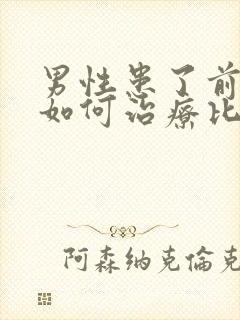 男性患了前
如何治療比
阿森纳克倫克